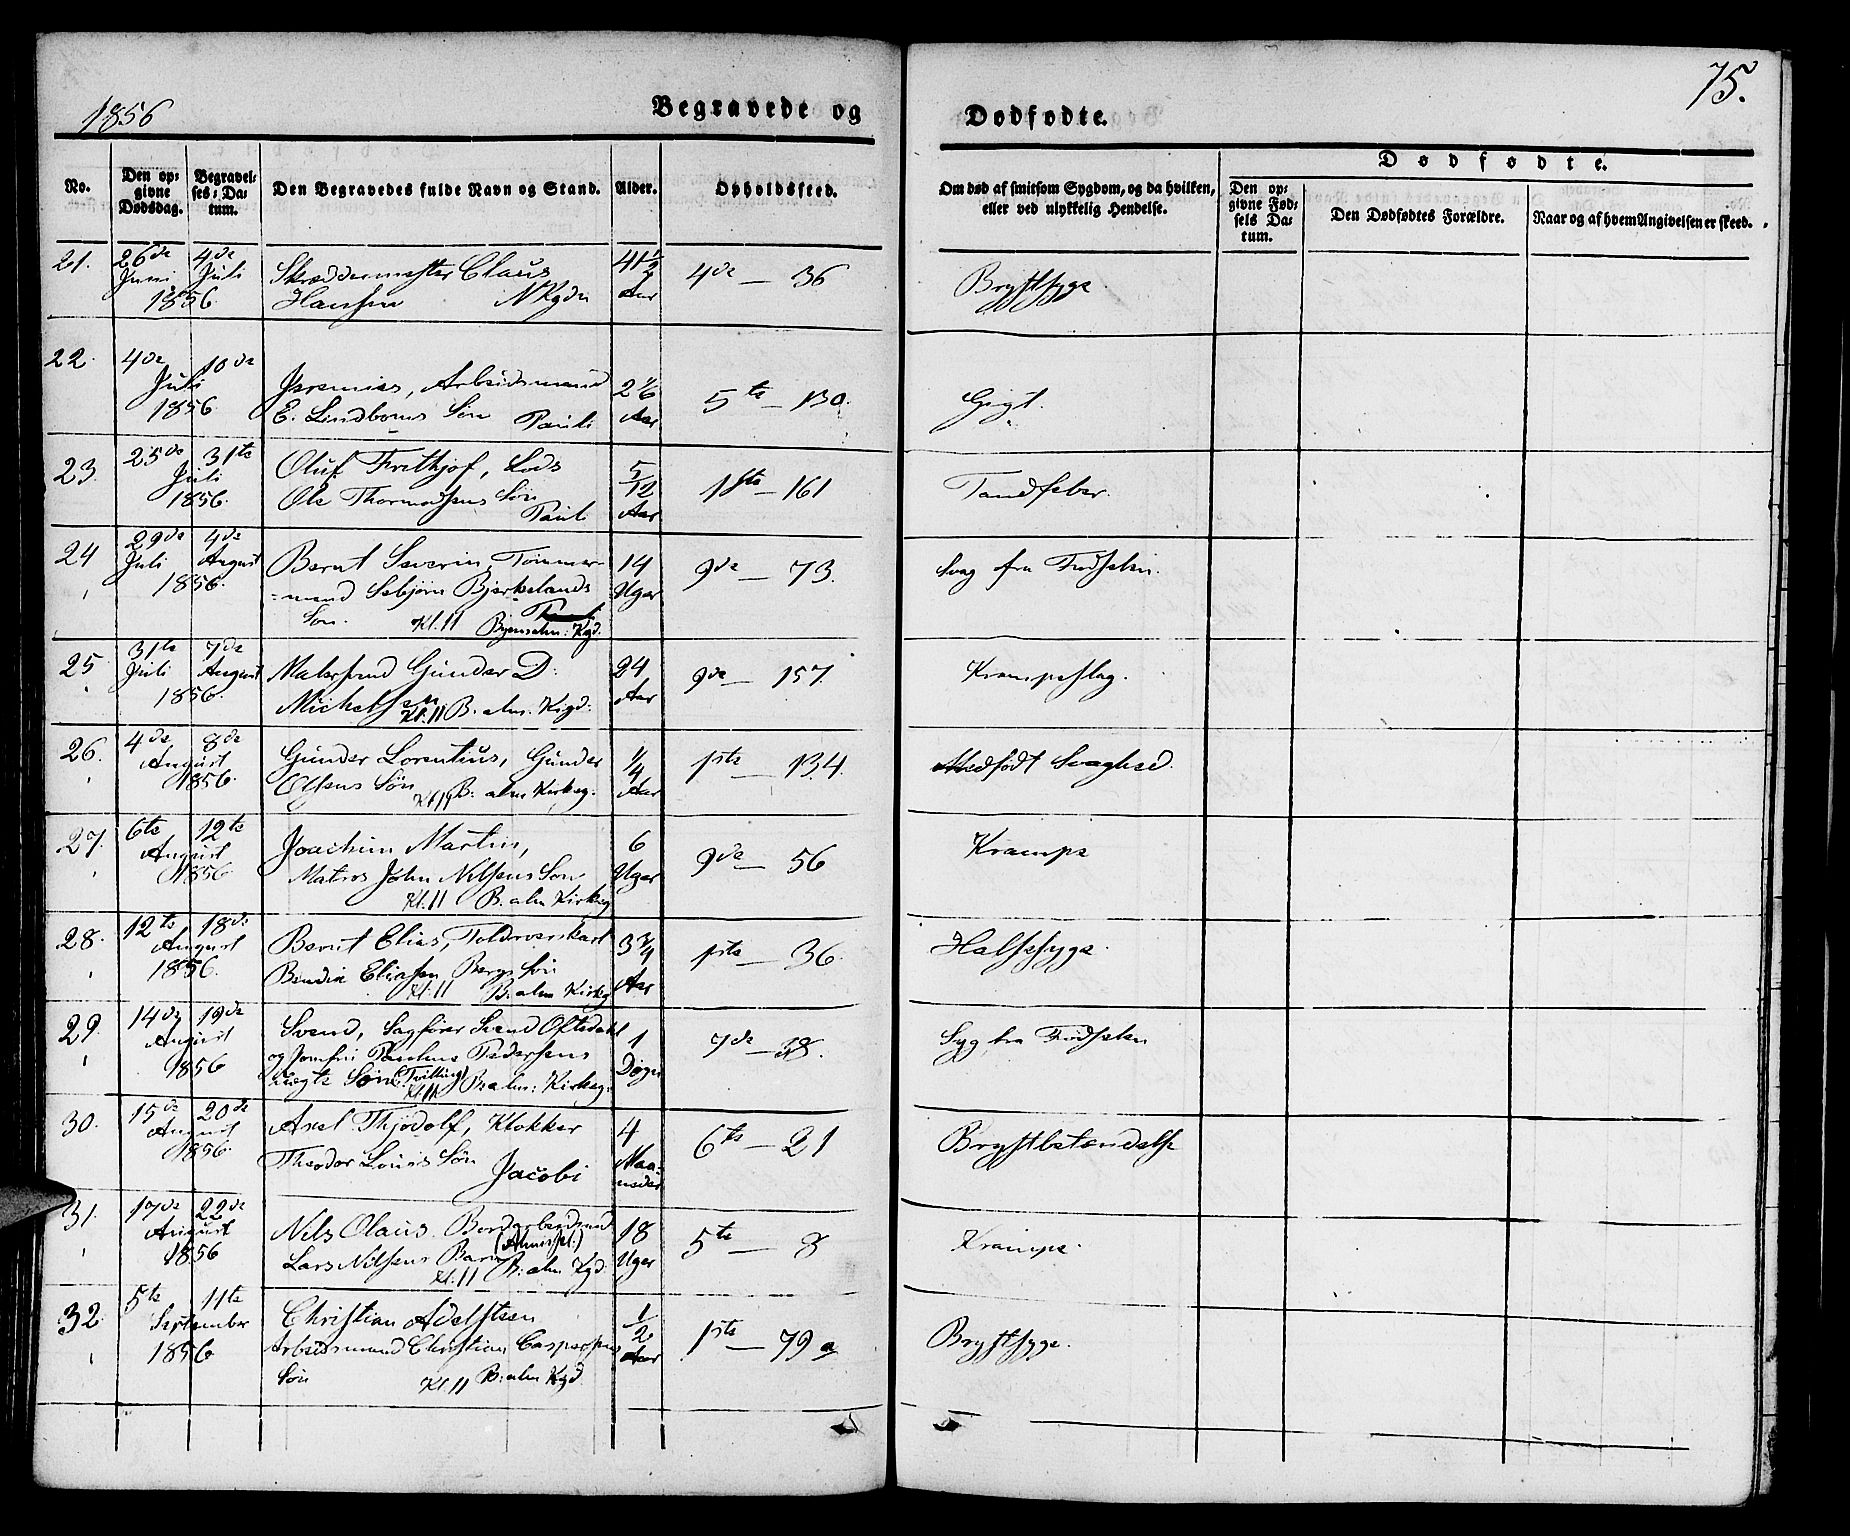 1856
Begravede og
Dødfødte.
75.
No.
Den opgivne Dødsdag.
Begravelses-Datum.
Den Begravedes fulde Navn og Stand.
Alder.
Opholdssted.
Om død af smitsom Sygdom, og da hvilken, eller ved ulykkelig Hendelse.
Dødfødte.
Den opgivne Fødsels Datum.
Den Dødfødtes Forældre.
Naar og af hvem Angivelsen er skeed.
21. 26de Juni 4de Juli 1856
Skræddermester Claus
Hansen NKgdn
41½ Aar
4de — 36
Brystsyge.
22. 4de 10de Juli 1856.
Jeremias, Arbeidsmand
E. Lindboms Søn Pauli
2 1/6 Aar
5te — 130.
Gigt.
23. 25de 31te Juli 1856.
Oluf Frithjof, Lods
Ole Thormodsens Søn
Pauli
5/12 Aar
1ste — 161
Tandfeber.
24 29de Juli 4de August 1856.
Bernt Severin, Tømmer-
mand Sebjørn Bjerkelands
Søn. Kl. 11 Byens alm: Kgd.
14 Uger
9de — 73.
Svag fra Fødselen.
25. 31te Juli 7de August 1856.
Malersvend Gunder D.
Michelsen
Kl. 11 B. alm. Kigd:
24 Aar
9de — 157.
Krampeslag.
26. 4de 8de August 1856.
Gunder Lorentius, Gunder
Olsens Søn
Kl 11 B: alm Kirkeg:
1/4 Aar
1ste — 134.
Medfødt Svaghed.
27. 6te 12te August 1856.
Joachim Martin,
Matros John Nilsens Søn
Kl. 11 B. alm Kirkeg
6 Uger
9de — 56
Krampe
28. 12te 18de August 1856.
Bernt Elias, Toldroerskarl
Bendix Eliasen Bergs Søn
Kl. 11 B. alm Kirkeg
3 3/4 Aar
1ste — 36.
Halsesyge.
29. 14de 19de August 1856
Svend, Sagfører Svend Oftedahl
og Jomfru Pauline Pedersens
uægte Søn (Tvilling)
Kl. 11 B. alm: Kirkeg.
1 Døgn
7de — 38.
Syg fra Fødselen
30. 15de 20de August 1856.
Axel Thjodolf, Klokker
Theodor Louis Søn Jacobi
4 Maaneder
6te — 21
Brystbetændelse
31. 17de 22de August 1856
Nils Olaus. Bordarbeidsmd
Lars Nilsens Barn
Kl. 11 B: alm Kgd.
18 Uger
5te — 8
Krampe.
32. 5te 11te September 1856
Christian Adelsteen
Arbeidsmand Christian Caspersens
Søn Kl. 11 B: alm Kgd.
1/2 Aar
1ste — 79 a
Brystsyge.